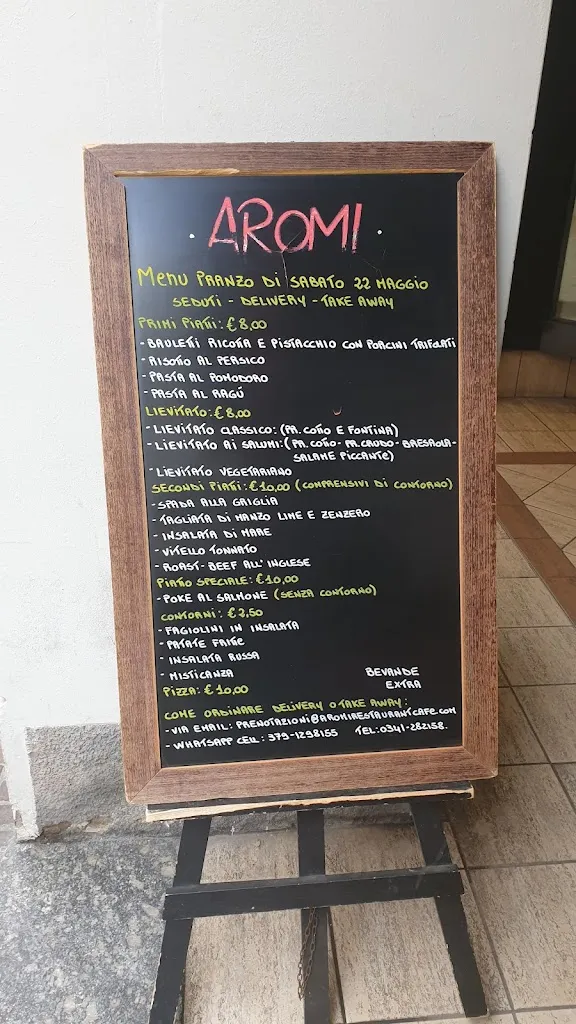 . AROMI .
MENU PRANZO DI SABATO 22 MAGGIO
SEDUTI - DELIVERY - TAKE AWAY
PRIMI PIATTI: € 8,00
- BAULETTI RICOTTA E PISTACCHIO CON PORCINI TRIFOLATI
- RISOTTO AL PERSICO
- PASTA AL POMODORO
- PASTA AL RAGÚ
LIEVITATO: € 8,00
- LIEVITATO CLASSICO: (PR. COTTO E FONTINA)
- LIEVITATO AI SALUMI: (PR. COTTO - PR. CRUDO - BRESAOLA -
SALAME PICCANTE)
- LIEVITATO VEGETARIANO
SECONDI PIATTI: € 10,00 (COMPRENSIVI DI CONTORNO)
- SPADA ALLA GRIGLIA
- TAGLIATA DI MANZO LIME E ZENZERO
- INSALATA DI MARE
- VITELLO TONNATO
- ROAST-BEEF ALL'INGLESE
PIATTO SPECIALE: € 10,00
- POKE AL SALMONE (SENZA CONTORNO)
CONTORNI: € 2,50
- FAGIOLINI IN INSALATA
- PATATE FRITTE
- INSALATA RUSSA
- MISTICANZA
BEVANDE
EXTRA
PIZZA: € 10,00
COME ORDINARE DELIVERY O TAKE AWAY:
- VIA EMAIL: PRENOTAZIONI@AROMIRESTAURANTCAFE.COM
- WHATSAPP CELL: 379-1298155 TEL: 0341-282158.